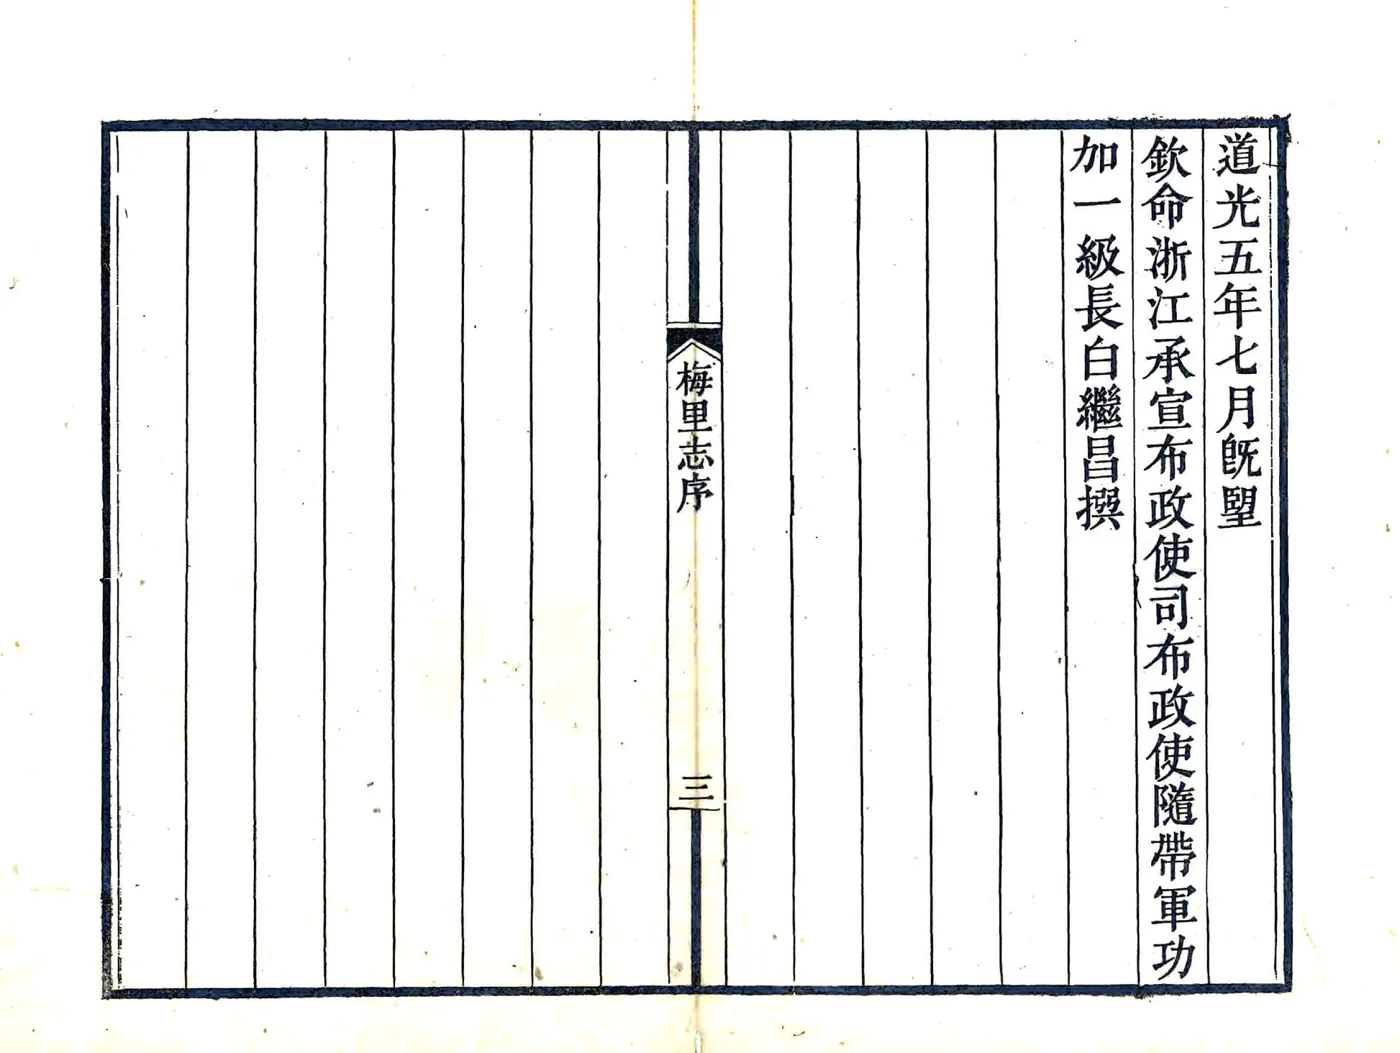 道光五年七月旣朢
欽命浙江承宣布政使司布政使隨帶軍功
加一級長白繼昌撰
梅里志序
三